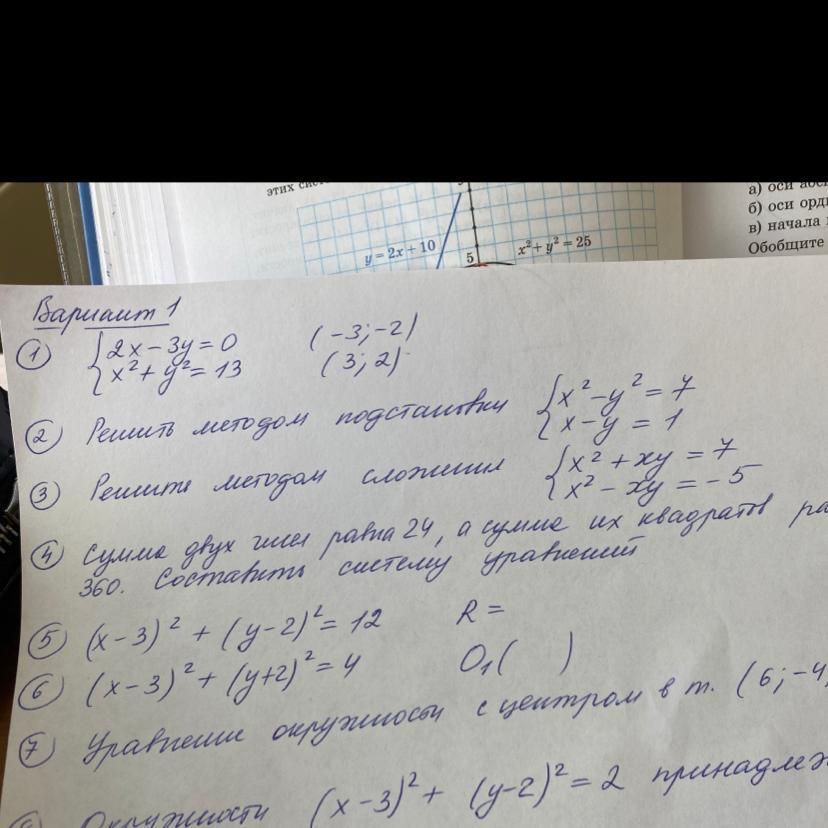 этих
y = 2x + 10
5
x² + y² = 25
а) оси
б) оси
в) начала
Обобщите
Вариант 1
① { 2x – 3y = 0 (-3; -2)
x² + y² = 13 (3; 2)
② Решить методом подстановки { x² – y² = 7
x – y = 1
③ Решите методом сложения { x² + xy = 7
x² – xy = -5
④ Сумма двух чисел равна 24, а сумма их квадратов
360. Составить систему уравнений
⑤ (x – 3)² + (y – 2)² = 12 R =
⑥ (x – 3)² + (y + 2)² = 4 O₁( )
⑦ Уравнение окружности с центром в т. (6; -4
Окружности (x – 3)² + (y – 2)² = 2